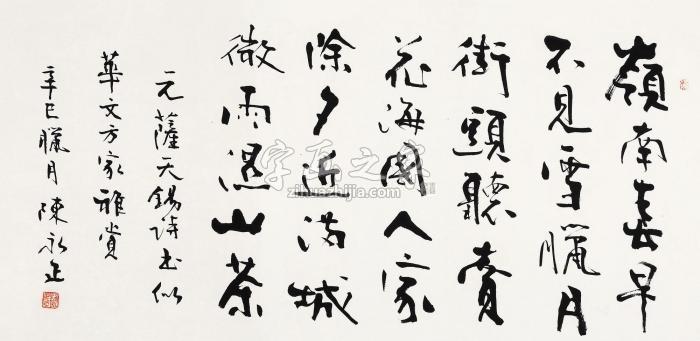 嶺南春早
不見雪臘月
街頭聽賣
花海國人家
除夕近滿城
微雨過山茶
元薩天錫詩書似
華文方家雅賞
辛巳臘月陳永正
字匠之家
zihuazhijia.com